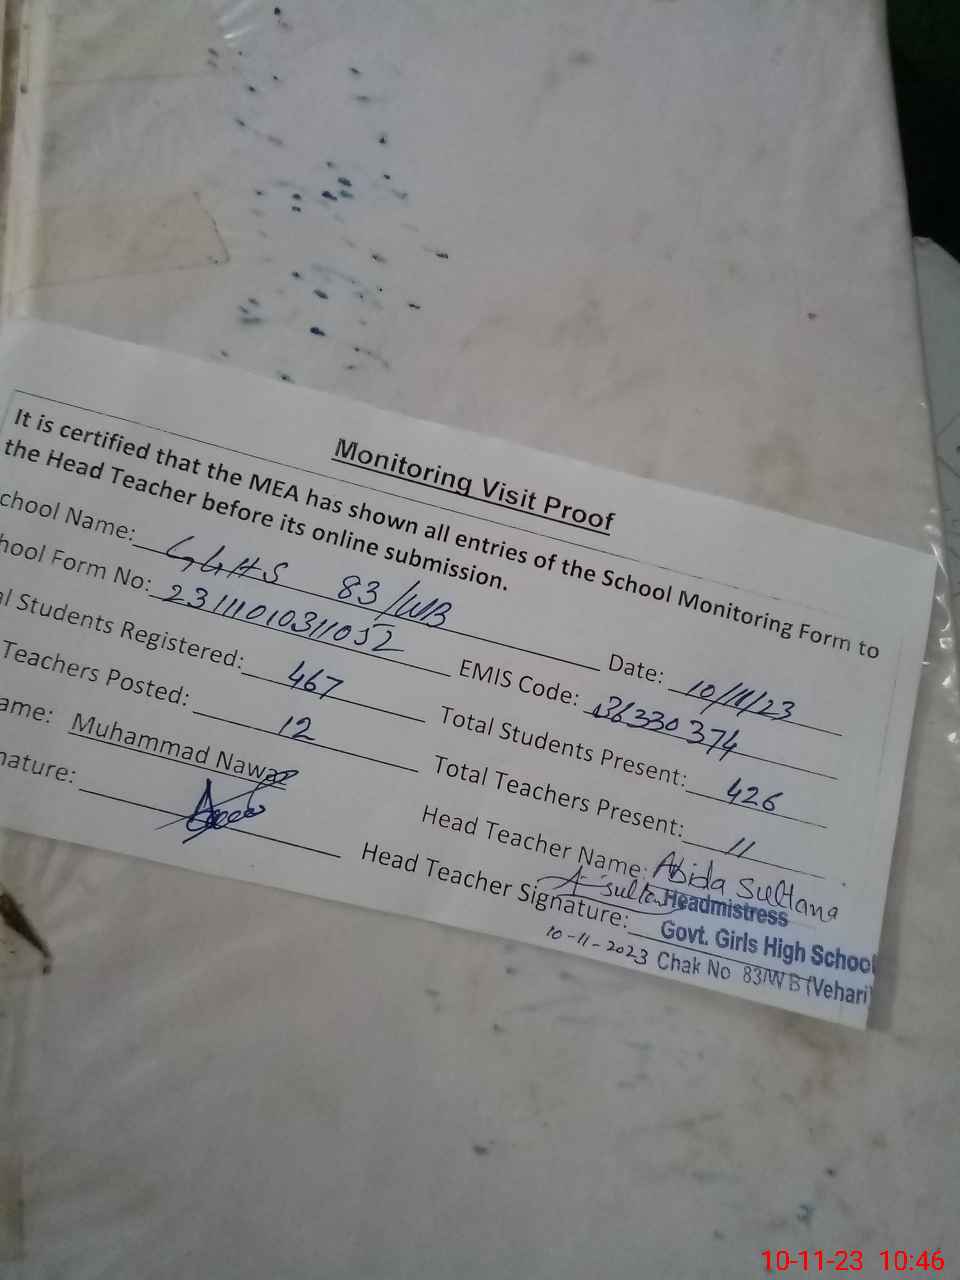 Monitoring Visit Proof
It is certified that the MEA has shown all entries of the School Monitoring Form to
the Head Teacher before its online submission.
chool Name: GGHS 83/WB Date: 10/11/23
hool Form No: 2311101031052 EMIS Code: 36330374
al Students Registered: 467 Total Students Present: 426
Teachers Posted: 12 Total Teachers Present: 11
ame: Muhammad Nawaz Head Teacher Name: Abida Sultana
nature: Head Teacher Signature: A. Sultana
Headmistress
Govt. Girls High School
10-11-2023 Chak No 83/WB (Vehari)
10-11-23 10:46